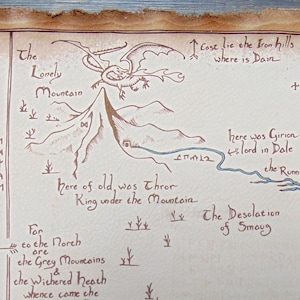 The
Lonely
Mountain
East lie the Iron Hills
where is Dain
here was Girion
lord in Dale
the Runn
here of old was Thror
King under the Mountain
The Desolation
of Smaug
Far
to the North
are
the Grey Mountains
&
the Withered Heath
whence came the